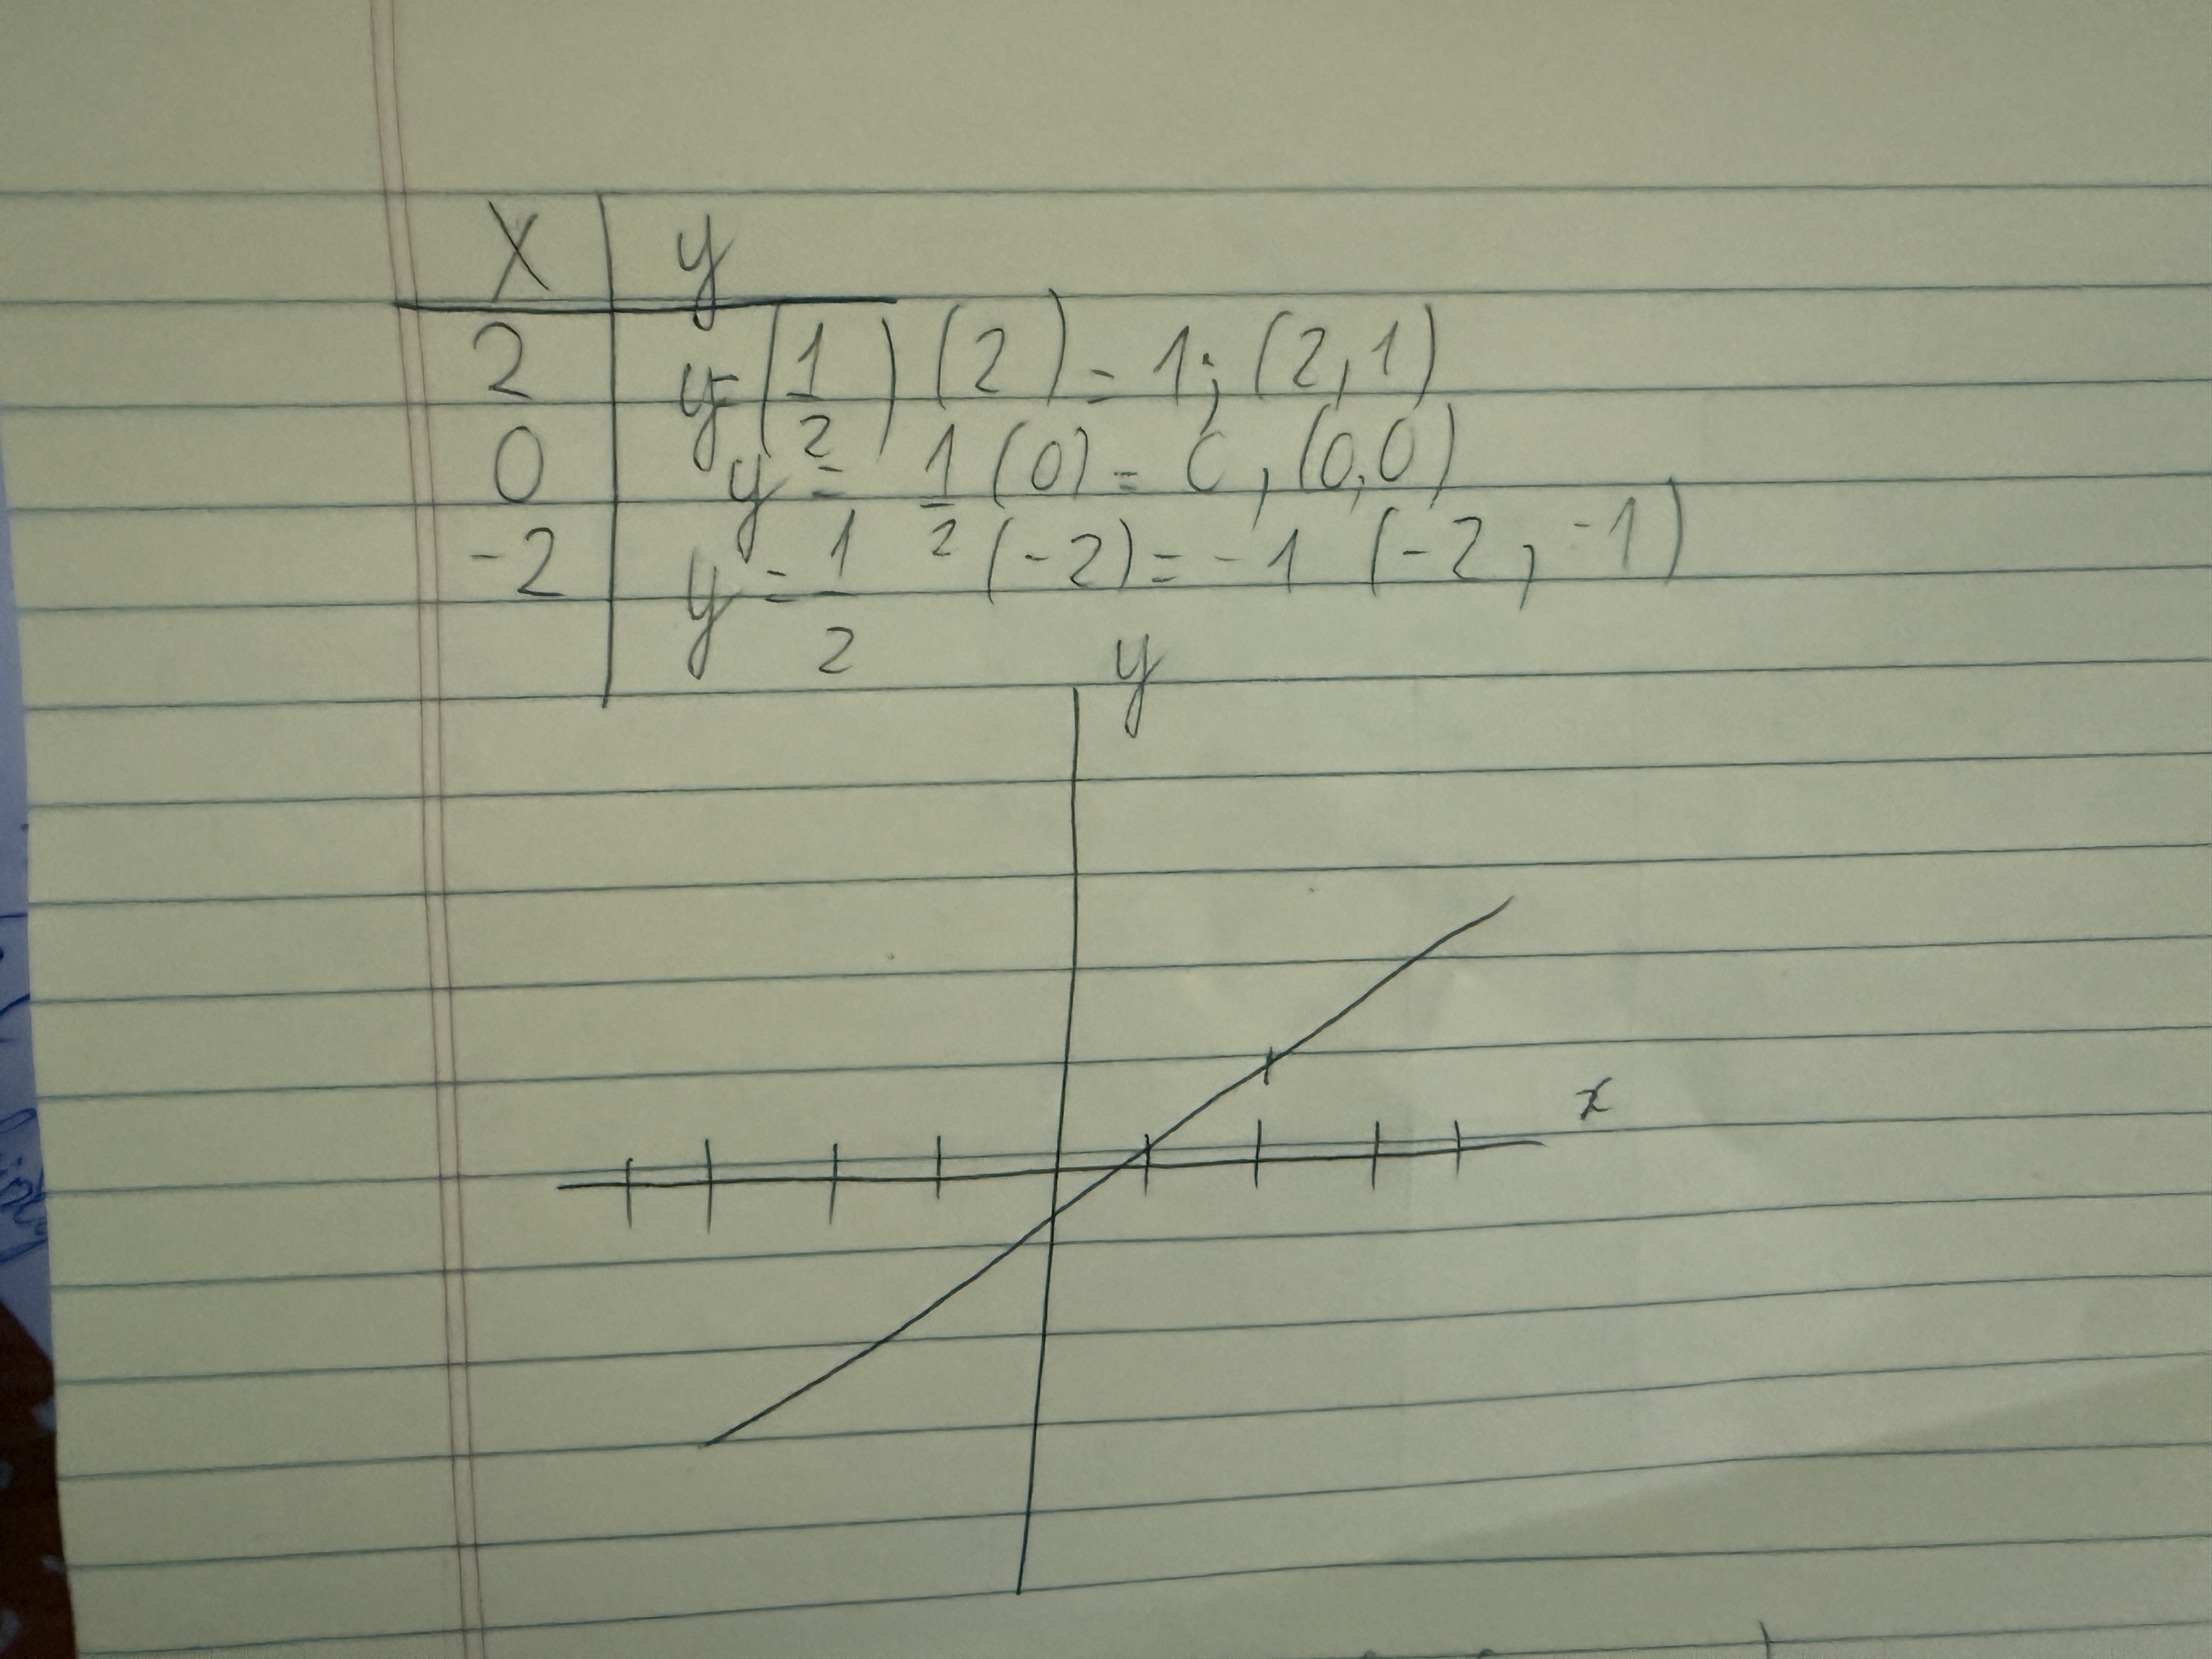 X y
2 y= (1/2)(2) = 1. (2, 1)
0 y y = 1/2 (0) = 0, (0, 0)
-2 y = y 1/2 (-2) = -1 (-2, -1)
y 2
y
x